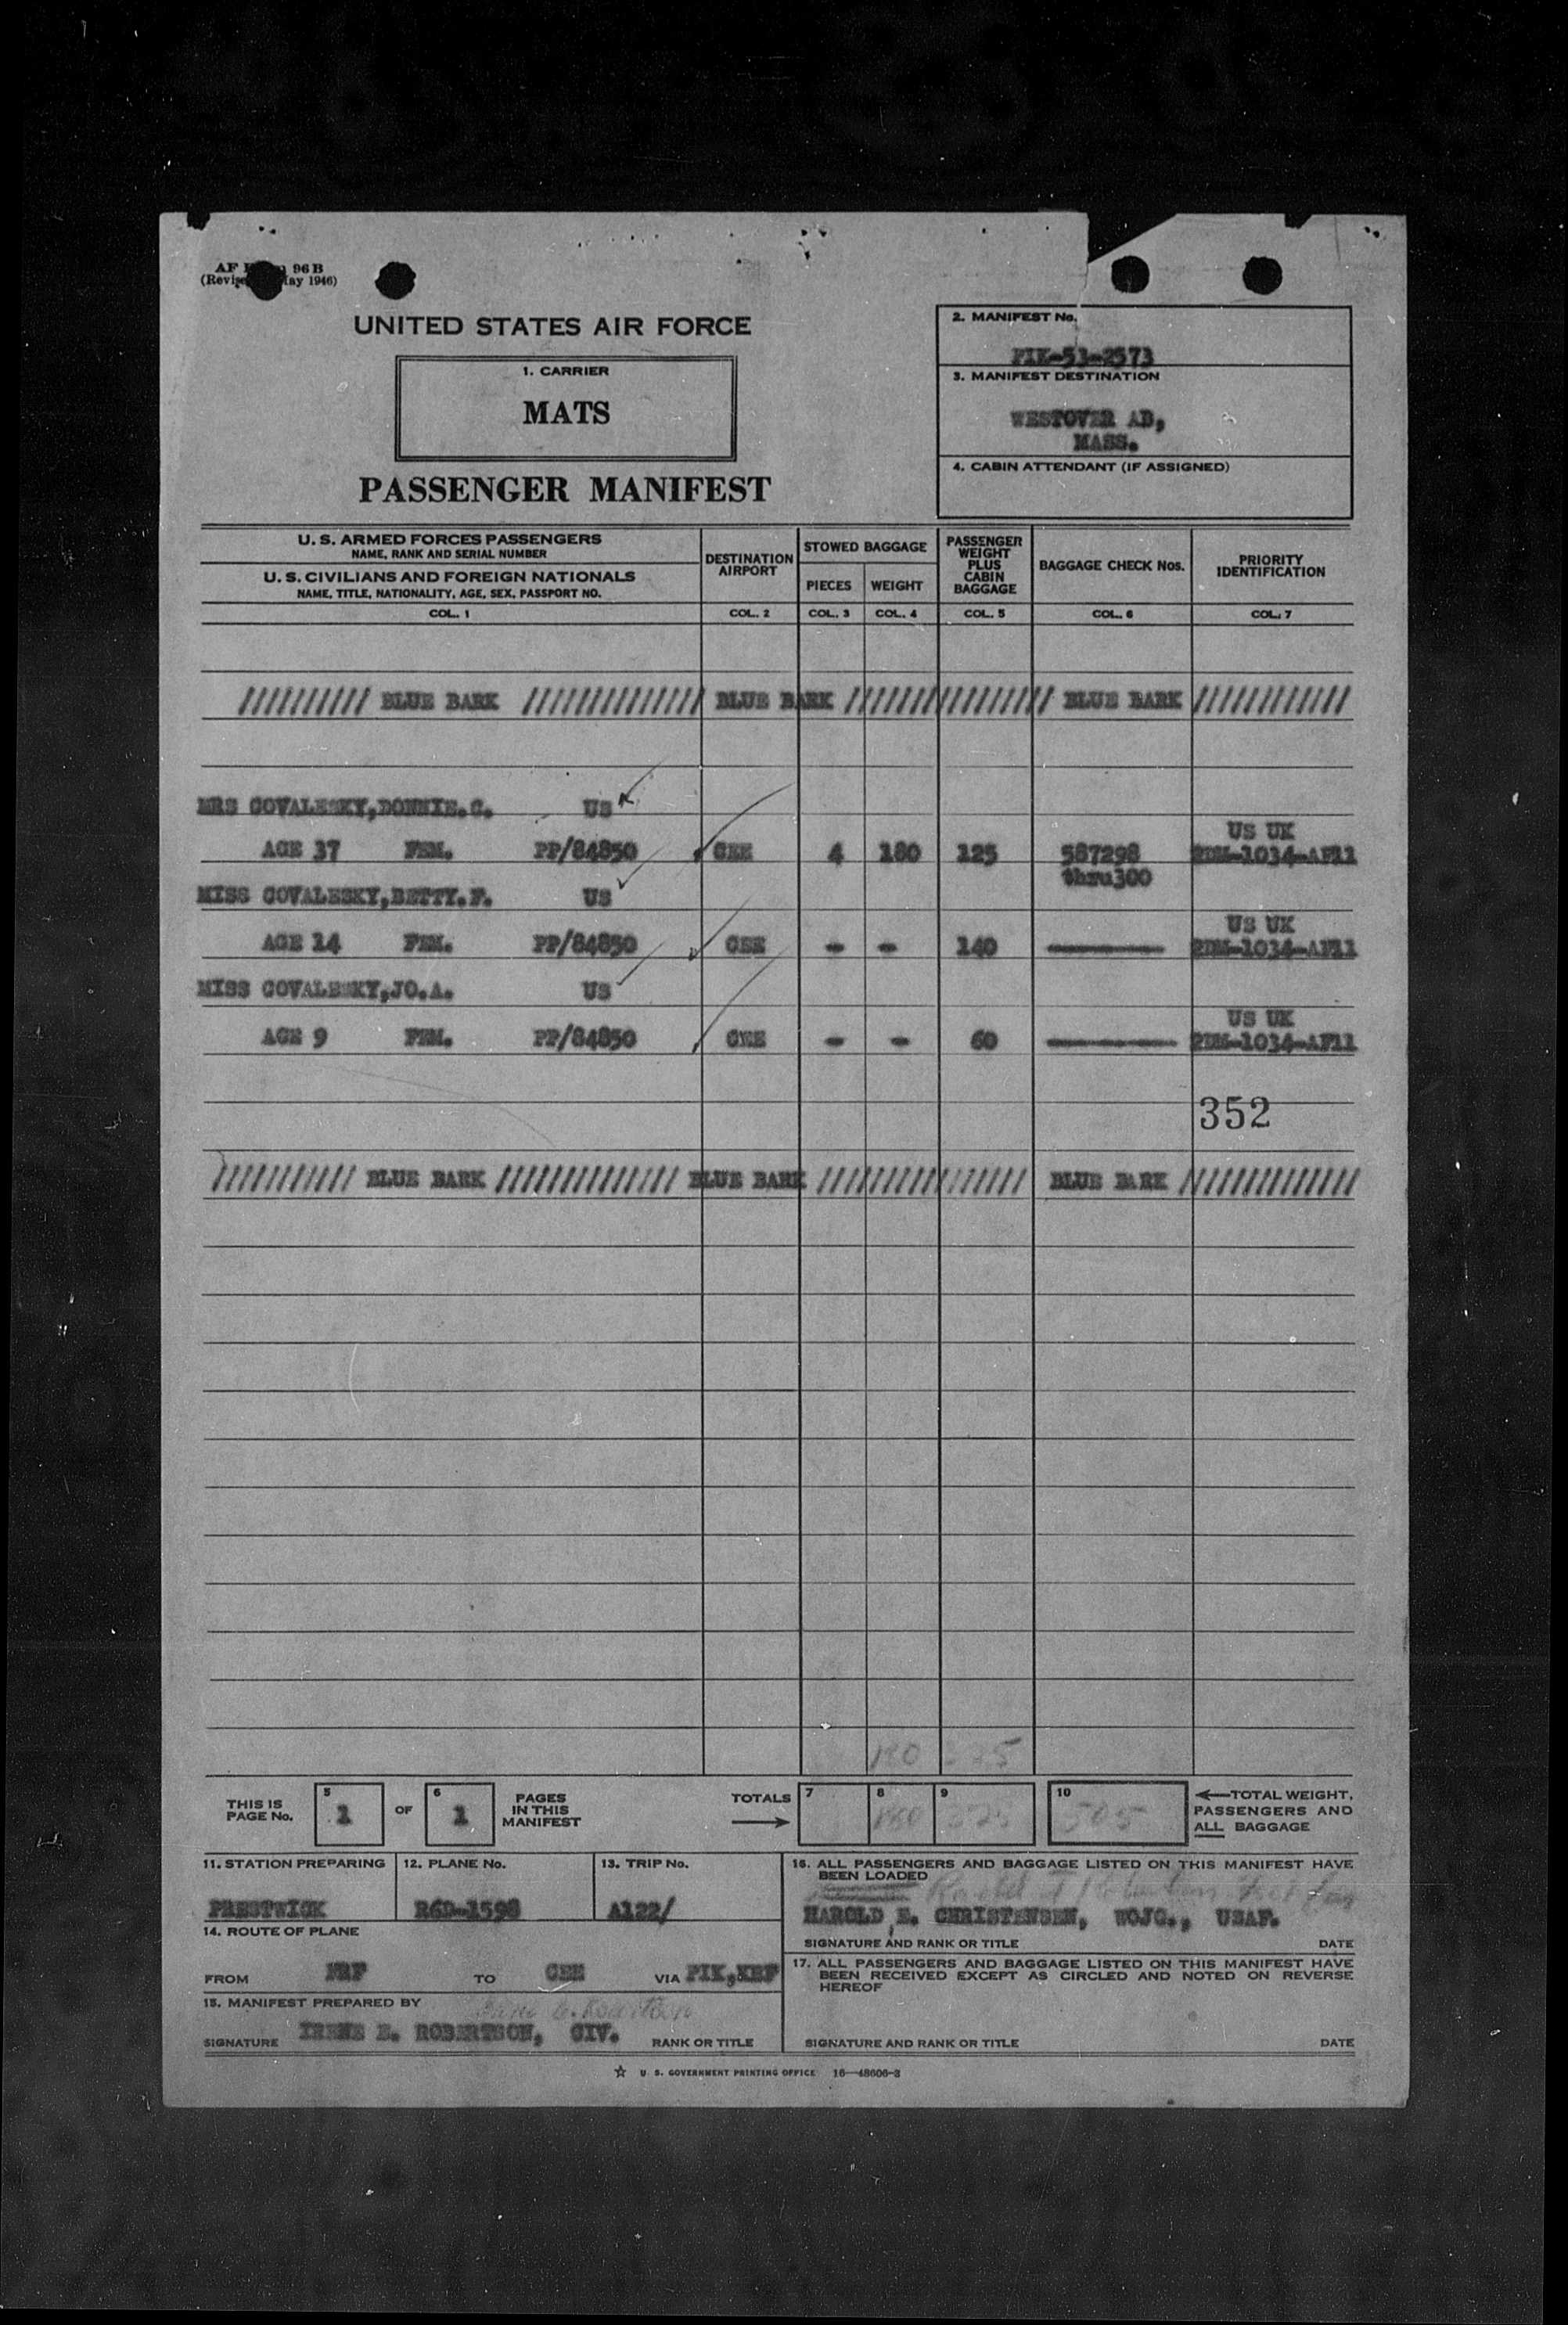 AF 96 B
(Revised May 1946)
UNITED STATES AIR FORCE
1. CARRIER
MATS
PASSENGER MANIFEST
2. MANIFEST No.
PIK-53-2573
3. MANIFEST DESTINATION
WESTOVER AB,
MASS.
4. CABIN ATTENDANT (IF ASSIGNED)
U. S. ARMED FORCES PASSENGERS
NAME, RANK AND SERIAL NUMBER
U. S. CIVILIANS AND FOREIGN NATIONALS
NAME, TITLE, NATIONALITY, AGE, SEX, PASSPORT NO.
COL. 1
DESTINATION
AIRPORT
COL. 2
STOWED BAGGAGE
PIECES WEIGHT
COL. 3 COL. 4
PASSENGER
WEIGHT
PLUS
CABIN
BAGGAGE
COL. 5
BAGGAGE CHECK Nos.
COL. 6
PRIORITY
IDENTIFICATION
COL. 7
////////// BLUE BARK ////////////// BLUE BARK //////////////// BLUE BARK ////////////
MRS COVALESKY,DONNIE.C. US
US UK
AGE 37 FEM. PP/84850 CEE 4 180 125 587298 2DM-1034-AF11
thru300
MISS COVALESKY,BETTY.F. US
US UK
AGE 14 FEM. PP/84850 CEE - - 140 2DM-1034-AF11
MISS COVALESKY,JO.A. US
US UK
AGE 9 FEM. PP/84850 CEE - - 60 2DM-1034-AF11
352
/////////// BLUE BARK ////////////// BLUE BARK //////////////// BLUE BARK //////////////
180 325
THIS IS
PAGE No.
5
1
OF
6
1
PAGES
IN THIS
MANIFEST
TOTALS
7
8
180
9
325
10
505
TOTAL WEIGHT,
PASSENGERS AND
ALL BAGGAGE
11. STATION PREPARING
PRESTWICK
12. PLANE No.
R6D-1598
13. TRIP No.
A122/
14. ROUTE OF PLANE
FROM FRF TO CEE VIA PIK,KEF
15. MANIFEST PREPARED BY
SIGNATURE IRENE E. ROBERTSON, CIV. RANK OR TITLE
16. ALL PASSENGERS AND BAGGAGE LISTED ON THIS MANIFEST HAVE
BEEN LOADED
HAROLD E. CHRISTENSEN, WOJG., USAF.
SIGNATURE AND RANK OR TITLE DATE
17. ALL PASSENGERS AND BAGGAGE LISTED ON THIS MANIFEST HAVE
BEEN RECEIVED EXCEPT AS CIRCLED AND NOTED ON REVERSE
HEREOF
SIGNATURE AND RANK OR TITLE DATE
U. S. GOVERNMENT PRINTING OFFICE 16—48606-3